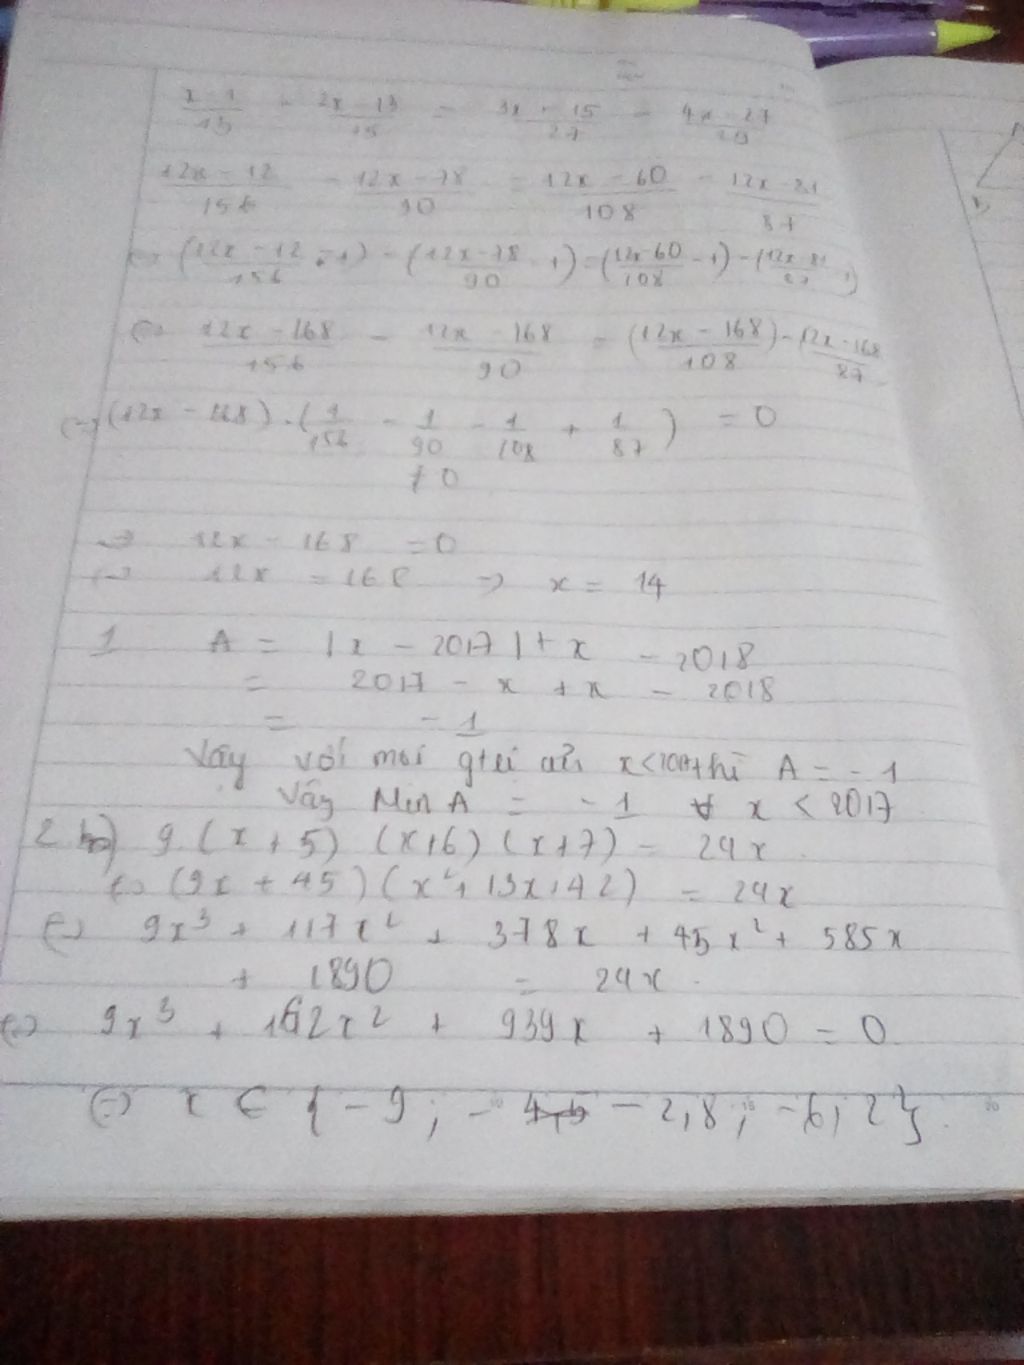 x - 1 / 13 - 2x - 13 / 15 = 3x - 15 / 27 - 4x - 27 / 29
12x - 12 / 156 - 12x - 78 / 90 = 12x - 60 / 108 - 12x - 81 / 87
<=> (12x - 12 / 156 - 1) - (12x - 78 / 90 - 1) = (12x - 60 / 108 - 1) - (12x - 81 / 87 - 1)
<=> 12x - 168 / 156 - 12x - 168 / 90 = (12x - 168 / 108) - 12x - 168 / 87
<=> (12x - 168) . (1 / 156 - 1 / 90 - 1 / 108 + 1 / 87) = 0
≠ 0
=> 12x - 168 = 0
<=> 12x = 168 => x = 14
1 A = |x - 2017| + x - 2018
= 2017 - x + x - 2018
= - 1
Vậy với mọi x < thì A = - 1
Vậy Min A = - 1 ∀ x < 2017
2 b) 9 (x + 5) (x + 6) (x + 7) = 24x
<=> (9x + 45) (x² + 13x + 42) = 24x
<=> 9x³ + 117x² + 378x + 45x² + 585x
+ 1890 = 24x
<=> 9x³ + 162x² + 939x + 1890 = 0
<=> x ∈ { - 9 ; - 2,8 ; - 6,2 }